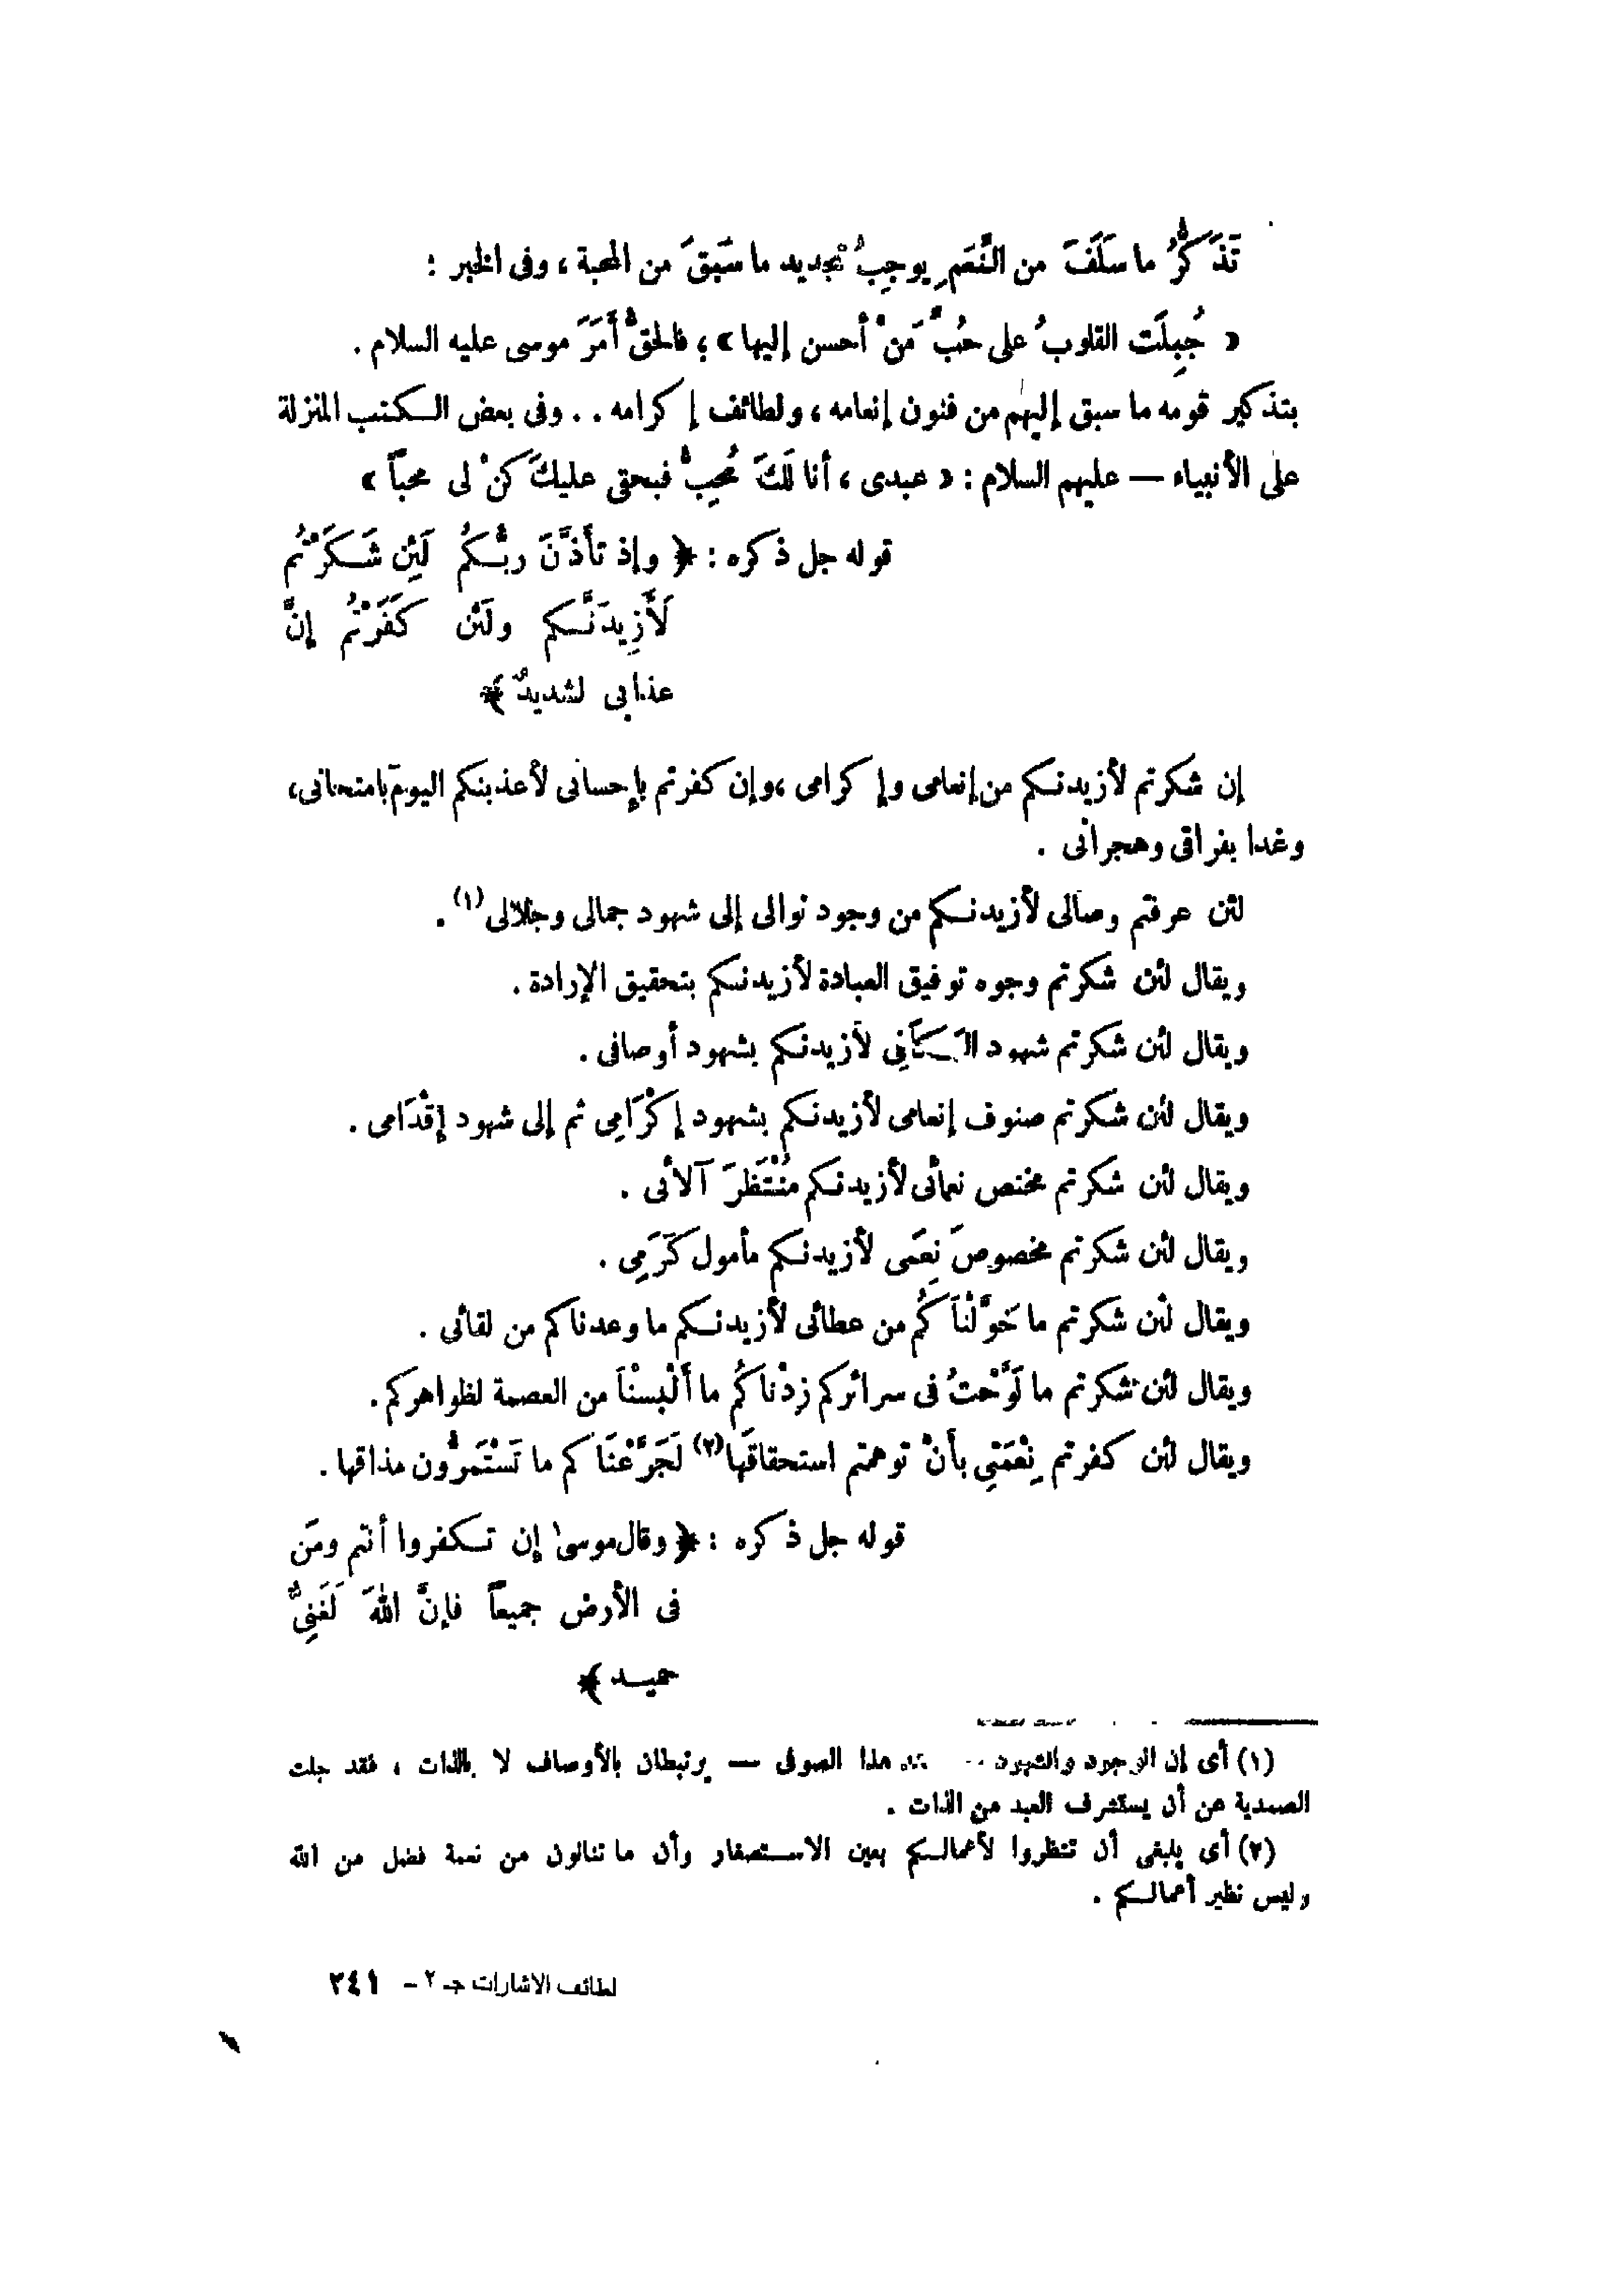 تَذَكُّرُ ما سَلَفَ من النِّعَمِ يوجِبُ تجديد ما سَبَقَ من المحبة ، وفى الخبر :
« جُبِلَت القلوبُ على حُبِّ مَنْ أحسن إليها » ؛ فالحقُّ أَمَرَ موسى عليه السلام .
بتذكير قومه ما سبق إليهم من فنون إنعامه ، ولطائف إكرامه . . وفى بعض الكتب المنزلة
على الأنبياء — عليهم السلام : « عبدى ، أنا لَكَ مُحِبٌّ فبحقى عليكَ كنْ لى محباً »
قوله جل ذكره : ﴿ وإذ تأذَّنَ ربُّكُم لَئِن شَكَرْتُم
لَأَزِيدَنَّكم ولَئن كَفَرْتُم إنَّ
عذابى لشديدٌ ﴾
إن شكرتم لأزيدنكم من إنعامى وإكرامى ، وإن كفرتم بإحسانى لأعذبنكم اليومَ بامتحانى ،
وغدا بفراقى وهجرانى .
لئن عرفتم وصالى لأزيدنكم من وجود نوالى إلى شهود جمالى وجلالى (١) .
ويقال لئن شكرتم وجوه توفيق العبادة لأزيدنكم بتحقيق الإرادة .
ويقال لئن شكرتم شهود لأزيدنكم بشهود أوصافى .
ويقال لئن شكرتم صنوف إنعامى لأزيدنكم بشهود إكْرَامِى ثم إلى شهود إقْدَامى .
ويقال لئن شكرتم مختص نعمائى لأزيدنكم مُنْتَظَرَ آلائى .
ويقال لئن شكرتم مخصوصَ نِعَمى لأزيدنكم مأمول كَرَمِى .
ويقال لئن شكرتم ما خَوَّلْنَاكُم من عطائى لأزيدنكم ما وعدناكم من لقائى .
ويقال لئن شكرتم ما لَوَّحْتُ فى سرائركم زِدْناكُم ما أَلْبَسْنَا من العصمة لظواهركم .
ويقال لئن كفرتم نِعْمَتِى بأنْ توهمتم استحقاقَها (٢) لَجَرَّعْنَاكم ما تَسْتَمِرُّون مذاقها .
قوله جل ذكره : ﴿ وقال موسىٰ إن تكفروا أنتم ومَن
فى الأرض جميعاً فإنَّ اللهَ لَغَنِىٌّ
حميد ﴾
(١) أى إن الوجود والشهود — عند هذا الصوفى — يرتبطان بالأوصاف لا بالذات ، فقد جلت
الصمدية عن أن يستشرف العبد من الذات .
(٢) أى ينبغى أن تنظروا لأعمالكم بعين الاستصغار وأن ما تنالون من نعمة فضل من الله
وليس نظير أعمالكم .
لطائف الاشارات جـ ٢ - ٢٤١